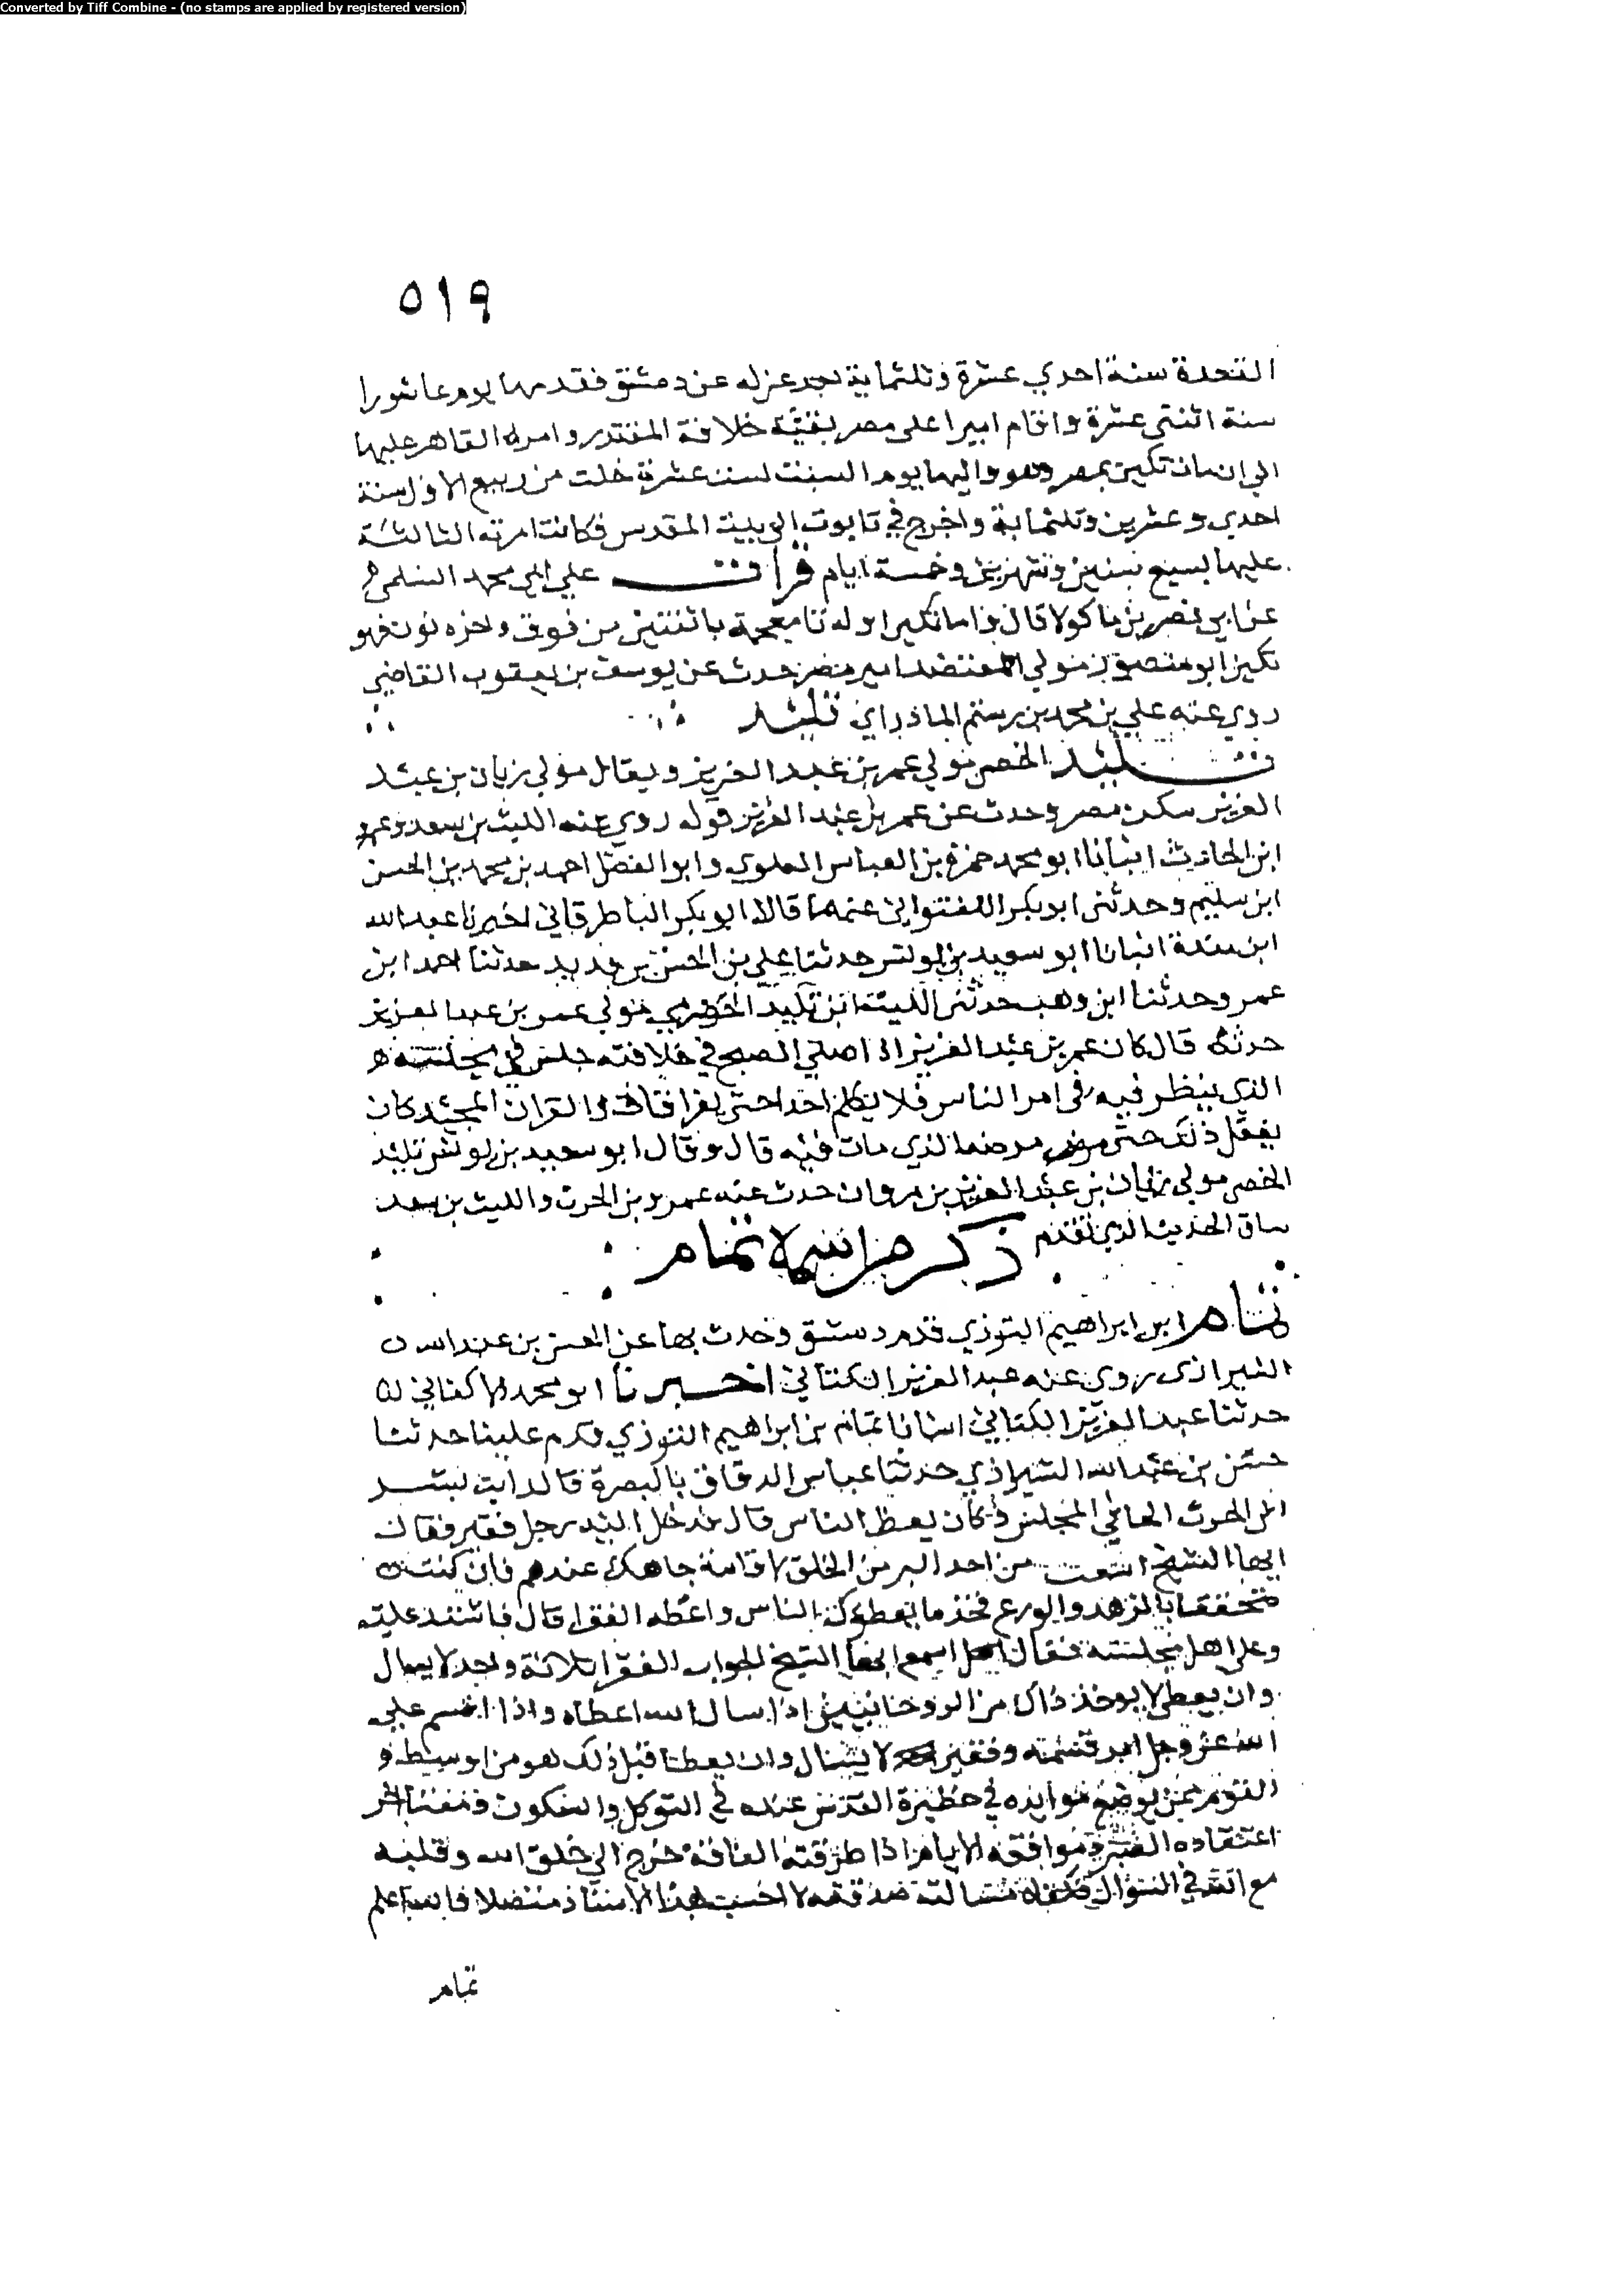 Converted by Tiff Combine - (no stamps are applied by registered version)
٥١٩
سنة احدي عشرة وثلثماية بعد عزله عن دمشق فقدمها يوم عاشورا
سنة اثنتى عشرة واقام اميرا على مصر بقية خلافة المقتدر وامره القاهر عليها
الي ان مات تكين بمصر وهو واليها يوم السبت لست عشرة خلت من ربيع الاول سنة
احدي وعشرين وثلثماية واخرج في تابوت الى بيت المقدس فكانت امرته الثالثة
عليها تسع سنين وشهرين وخمسة ايام قرات علي ابي محمد السلمى
عن ابي نصر بن ماكولا قال واما تكين اوله تا معجمة باثنتين من فوق واخره نون فهو
تكين ابو منصور مولي المعتضد امير مصر حدث عن يوسف بن يعقوب القاضي
روي عنه علي بن محمد بن رستم الماذراي تليد
تليد الخصى مولي عمر بن عبد العزيز ويقال مولي زبان بن عبد
العزيز سكن مصر وحدث عن عمر بن عبد العزيز قوله روي عنه الليث بن سعد وعمرو
ابن الحارث انبانا ابو محمد حمزة بن العباس العلوي وابو الفضل احمد بن محمد بن الحسن
ابن سليم وحدثنى ابو بكر اللفتوانى عنهما قالا ابو بكر الباطرقاني اخبرنا عبد الله
ابن مندة انبانا ابو سعيد بن يونس حدثنا علي بن الحسن بن قديد حدثنا احمد ابن
عمر وحدثنا ابن وهب حدثنى الليث ان تليد الخصي مولي عمر بن عبد العزيز
حدثه قال كان عمر بن عبد العزيز اذا صلي الصبح في خلافته جلس في مجلسه
الذي ينظر فيه في امر الناس فلا يكلم احدا حتى يقرا قاف والقران المجيد كان
يفعل ذلك حتى مرض مرضه الذي مات فيه قال وقال ابو سعيد بن يونس تليد
الخصى مولي زبان بن عبد العزيز بن مروان حدث عنه عمرو بن الحرث والليث بن سعد
ساق الحديث الذي تقدم ذكر من اسمه تمام
تمام ابن ابراهيم التوزي قدم دمشق وحدث بها عن الحسن بن عبد الله
الشيرازى روى عنه عبد العزيز الكتاني اخبرنا ابو محمد الاكفاني
حدثنا عبد العزيز الكتاني انبانا تمام بن ابراهيم التوزي قدم علينا حدثنا
حسن بن عبد الله الشيرازي حدثنا عباس الدقاق بالبصرة قال رايت بشر
ابن الحرث الحافي المجلس كان يعظ الناس قال فدخل اليه رجل فقير فقال
ايها الشيخ من احد البر من الخلق لاقامة جاهك عندهم فان كنت
متحققا بالزهد والورع فخذ ما يعطوك الناس واعطه الفقرا قال فاشتد عليه
وعلى اهل مجلسه فقال اسمع ايها الشيخ الجواب الفقرا ثلاثة واحد لا يسال
وان يعطى لا يوخذ ذاك من الروحانيين اذا سال الله اعطاه واذا اقسم علي
الله عز وجل ابر قسمه وفقير لا يسال وان يعطا قبل ذلك هو من اوسط
القوم ممن يوضع موايده في حظيرة القدس عنده في التوكل والسكون وفقير اخر
اعتقاده الصبر وموافقه الايام اذا طرقته الفاقة خرج الي خلق الله وقلبه
مع الله في السوال فكفارة مسالته صدقه لا احسب هذا الاستاذ متنصلا فالله اعلم
تمام